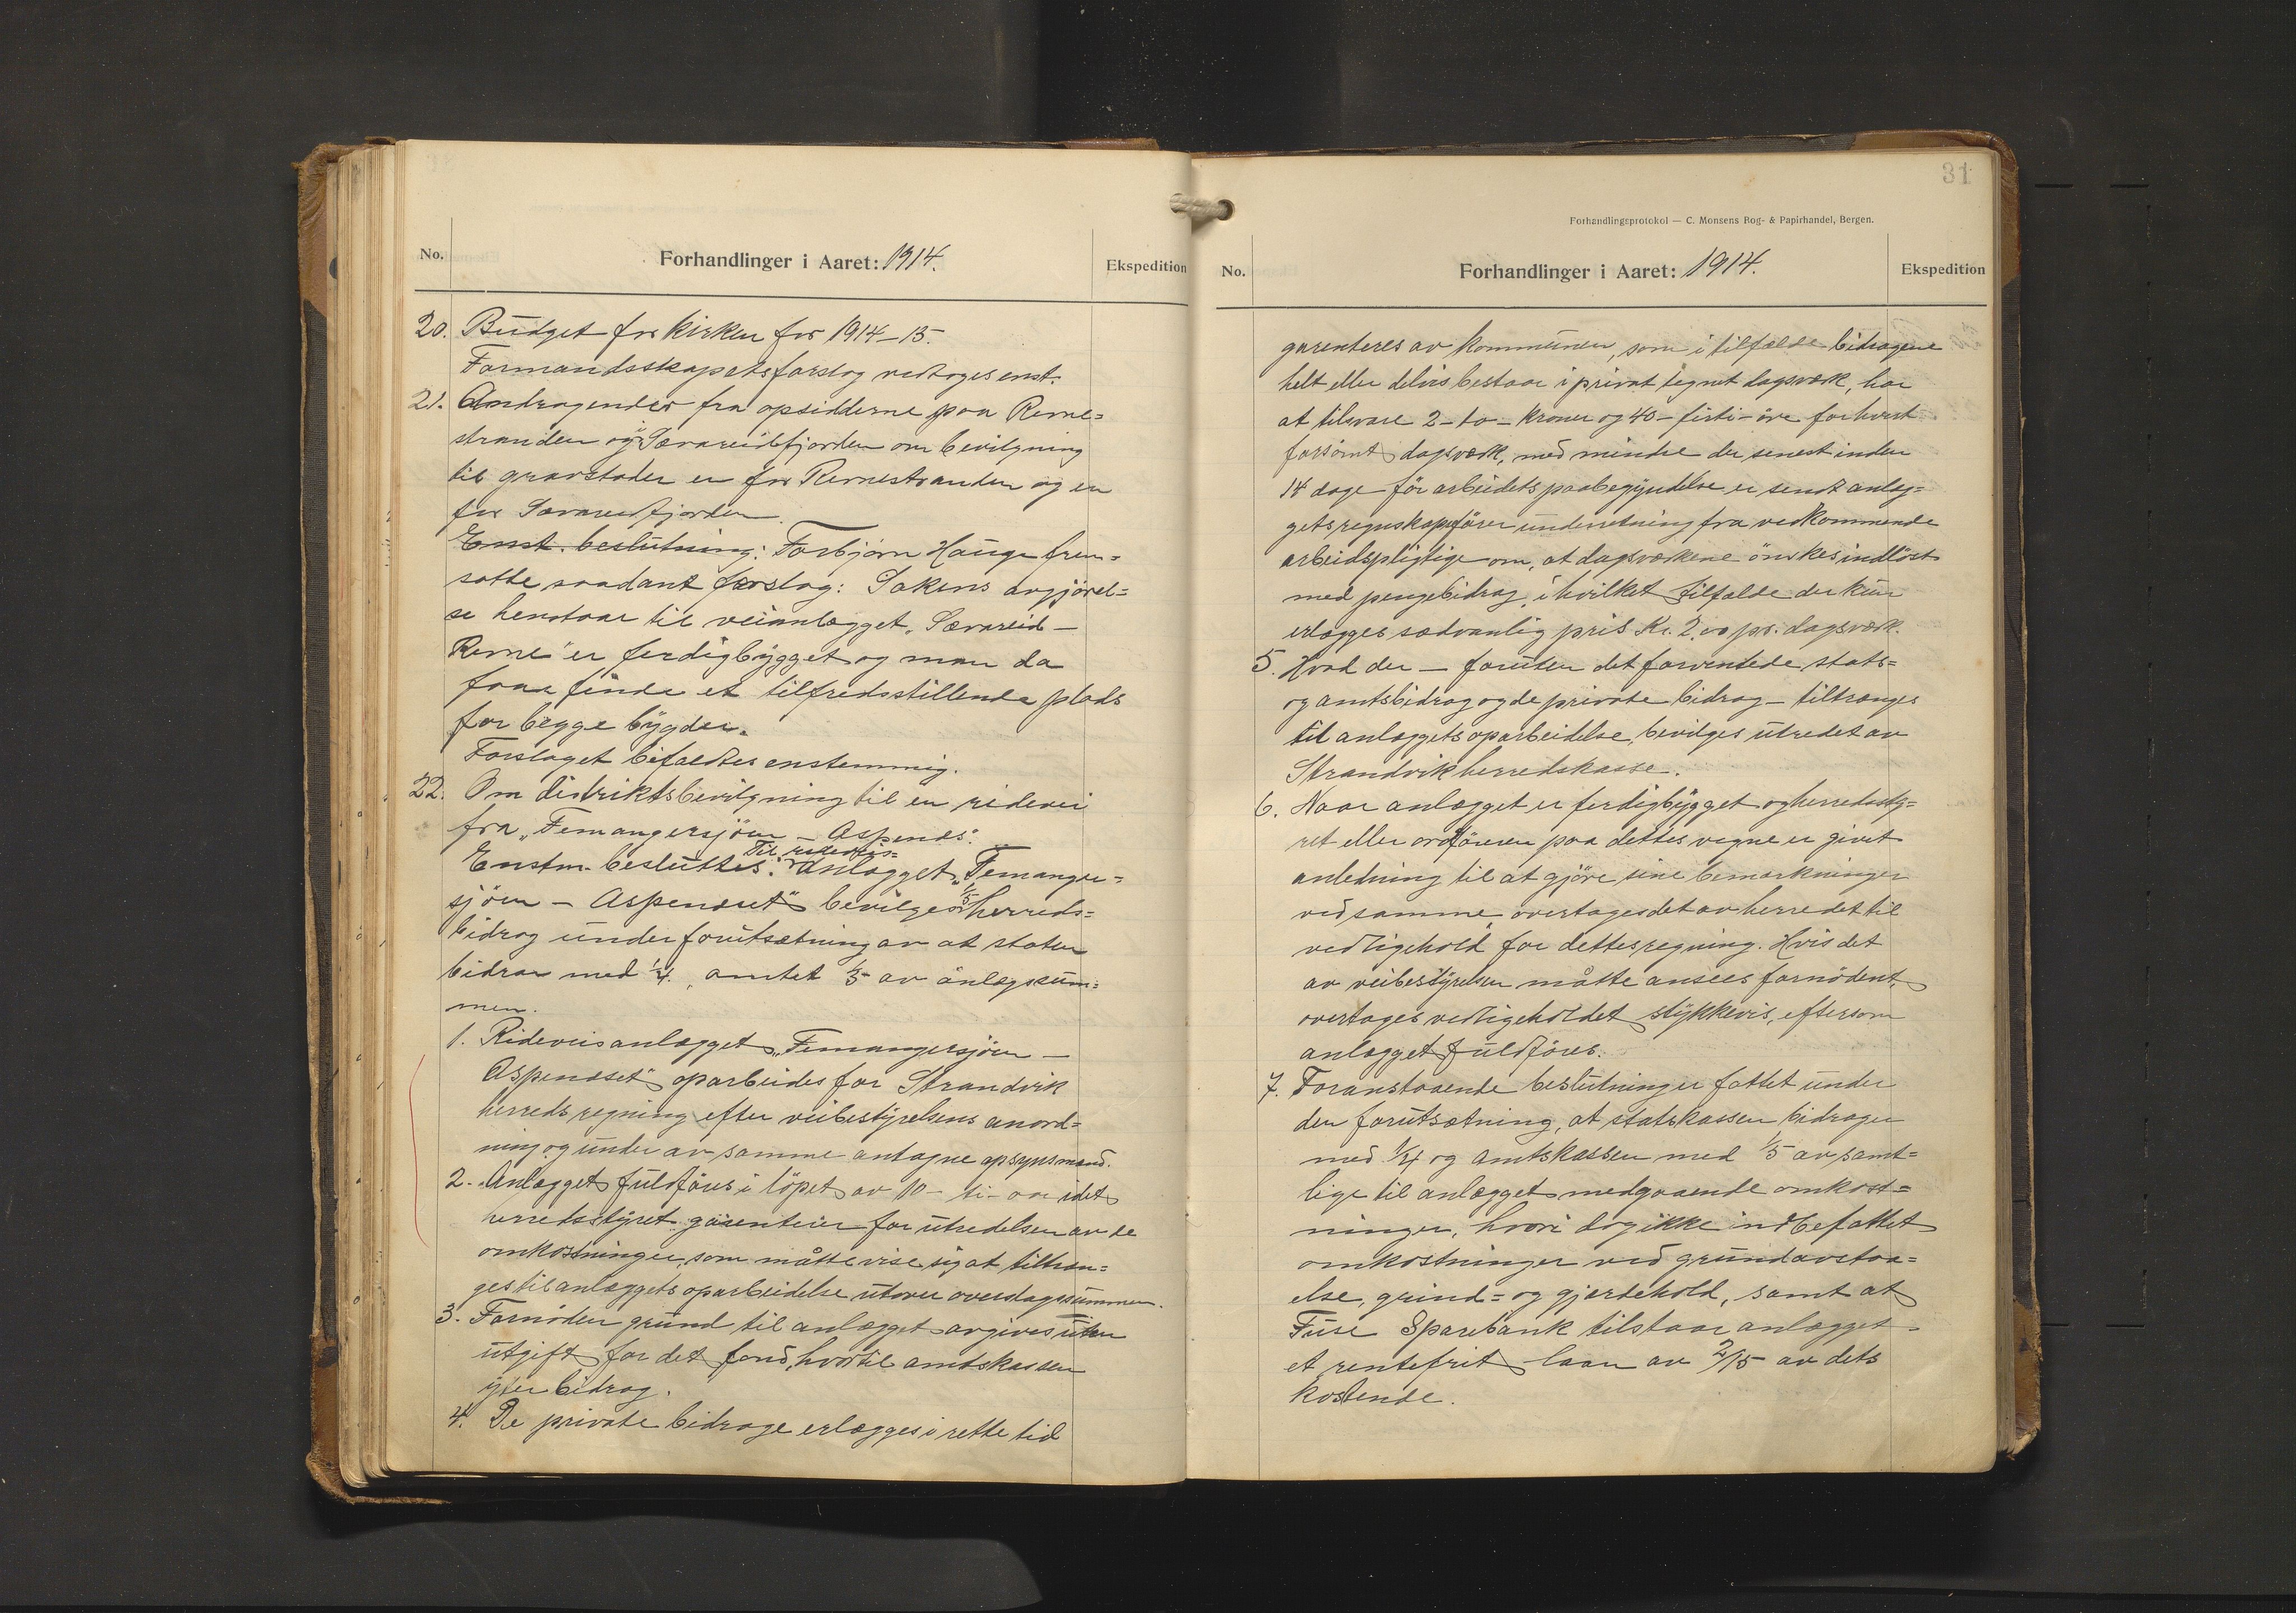 No.
Forhandlinger i Aaret: 1914.
Ekspedition
20. Budget for kirken for 1914–15.
Formandsskapets forslag vedtoges enst.
21. Andragender fra opsidderne paa Reme=
stranden og i Sævareidfjorden om bevilgning
til gravstader en for Remestranden og en
for Sævareidfjorden.
Enst. beslutning: Torbjørn Hauge frem=
satte saadant forslag: Sakens avgjörel=
se henstaar til veianlægget „Sævareid –
Reme" er ferdigbygget og man da
faar finde et tilfredsstillende plads
for begge bygder.
Forslaget bifaldtes enstemmig.
22. Om distriktsbevilgning til en ridevei
fra „Femangersjöen – Aspenes".
Til rideveis=
Enstm. besluttes: Anlægget „Femanger=
sjöen – Aspeneset" bevilges 1/5 herreds=
bidrag under forutsætning av at staten
bidrar med 1/4, amtet 1/5 av anlægssum=
men.
1. Rideveisanlægget „Femangersjöen –
Aspeneset" oparbeides for Strandvik
herreds regning efter veibestyrelsens anord=
ning og under av samme antagne opsynsmænd.
2. Anlægget fuldföres i löpet av 10 – ti – aar idet
herredsstyret garenterer for utredelsen av de
omkostninger, som måtte vise sig at tiltræn=
ges til anlæggets oparbeidelse utover overslagssummen.
3. Fornöden grund til anlægget avgives uten
utgift for det fond, hvortil amtskassen
yter bidrag.
4. De private bidrage erlægges i rette tid
31
Forhandlingsprotokol — C. Monsens Bog- & Papirhandel, Bergen.
No.
Forhandlinger i Aaret: 1914.
Ekspedition
garenteres av kommunen, som i tilfælde bidragene
helt eller delvis bestaar i privat tegnet dagsverk, har
at tilsvare 2 – to – kroner og 40 – firti – öre for hvert
forsömt dagsverk, med mindre der senest inden
14 dage för arbeidets paabegyndelse er sendt anlæg=
gets regnskapsförer underretning fra vedkommende
arbeidspligtige om, at dagsverkene önskes indlöst
med pengebidrag, i hvilket tilfælde der kun
erlægges sædvanlig pris Kr. 2,00 pr. dagsverk.
5. Hvad der – foruten det forventede stats=
og amtsbidrag og de private bidrag – tiltrænges
til anlæggets oparbeidelse, bevilges utredet av
Strandvik herredskasse.
6. Naar anlægget er ferdigbygget og herredssty=
ret eller ordföreren paa dettes vegne er givet
anledning til at gjöre sine bemerkninger
ved samme overtages det av herredet til
vedligehold for dettes regning. Hvis det
av veibestyrelsen måtte ansees fornödent,
overtages vedligeholdet stykkevis, eftersom
anlægget fuldföres.
7. Foranstaaende beslutninger fattet under
den forutsætning, at statskassen bidrager
med 1/4 og amtskassen med 1/5 av samt=
lige til anlægget medgaaende omkost=
ninger, hvori dog ikke indbefattet
omkostninger ved grundavstaa=
else, grind= og gjerdehold, samt at
Fuse Sparebank tilstaar anlægget
et rentefrit laan av 2/15 av dets
kostende.